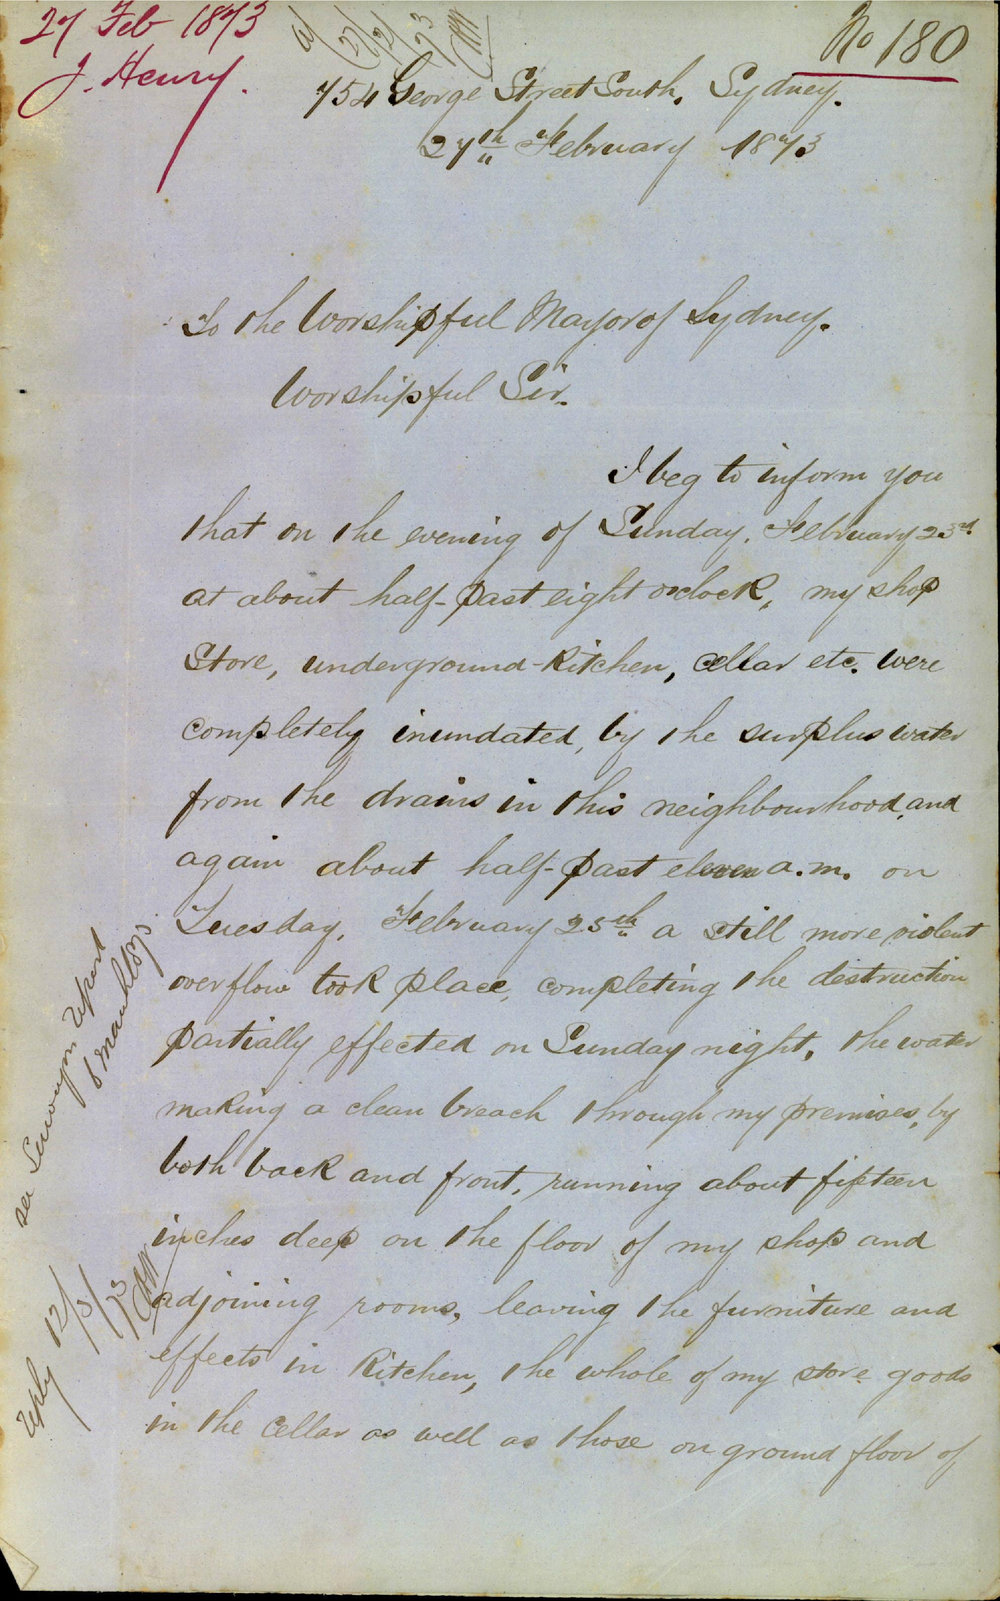 27 Feb 1873
J. Henry.
No 180
27/2/73
754 George Street South, Sydney.
27th February 1873
To the Worshipful Mayor of Sydney.
Worshipful Sir.
I beg to inform you
that on the evening of Sunday, February 23rd
at about half-past eight o'clock, my shop
Store, underground-Kitchen, Cellar etc. were
completely inundated, by the surplus water
from the drains in this neighbourhood, and
again about half-past eleven a.m. on
Tuesday, February 25th a still more violent
overflow took place, completing the destruction
partially effected on Sunday night, the water
making a clean breach through my premises, by
both back and front, running about fifteen
inches deep on the floor of my shop and
adjoining rooms, leaving the furniture and
effects in Kitchen, the whole of my store goods
in the Cellar as well as those on ground floor of
see Surveyors report
Reply 12/3/73